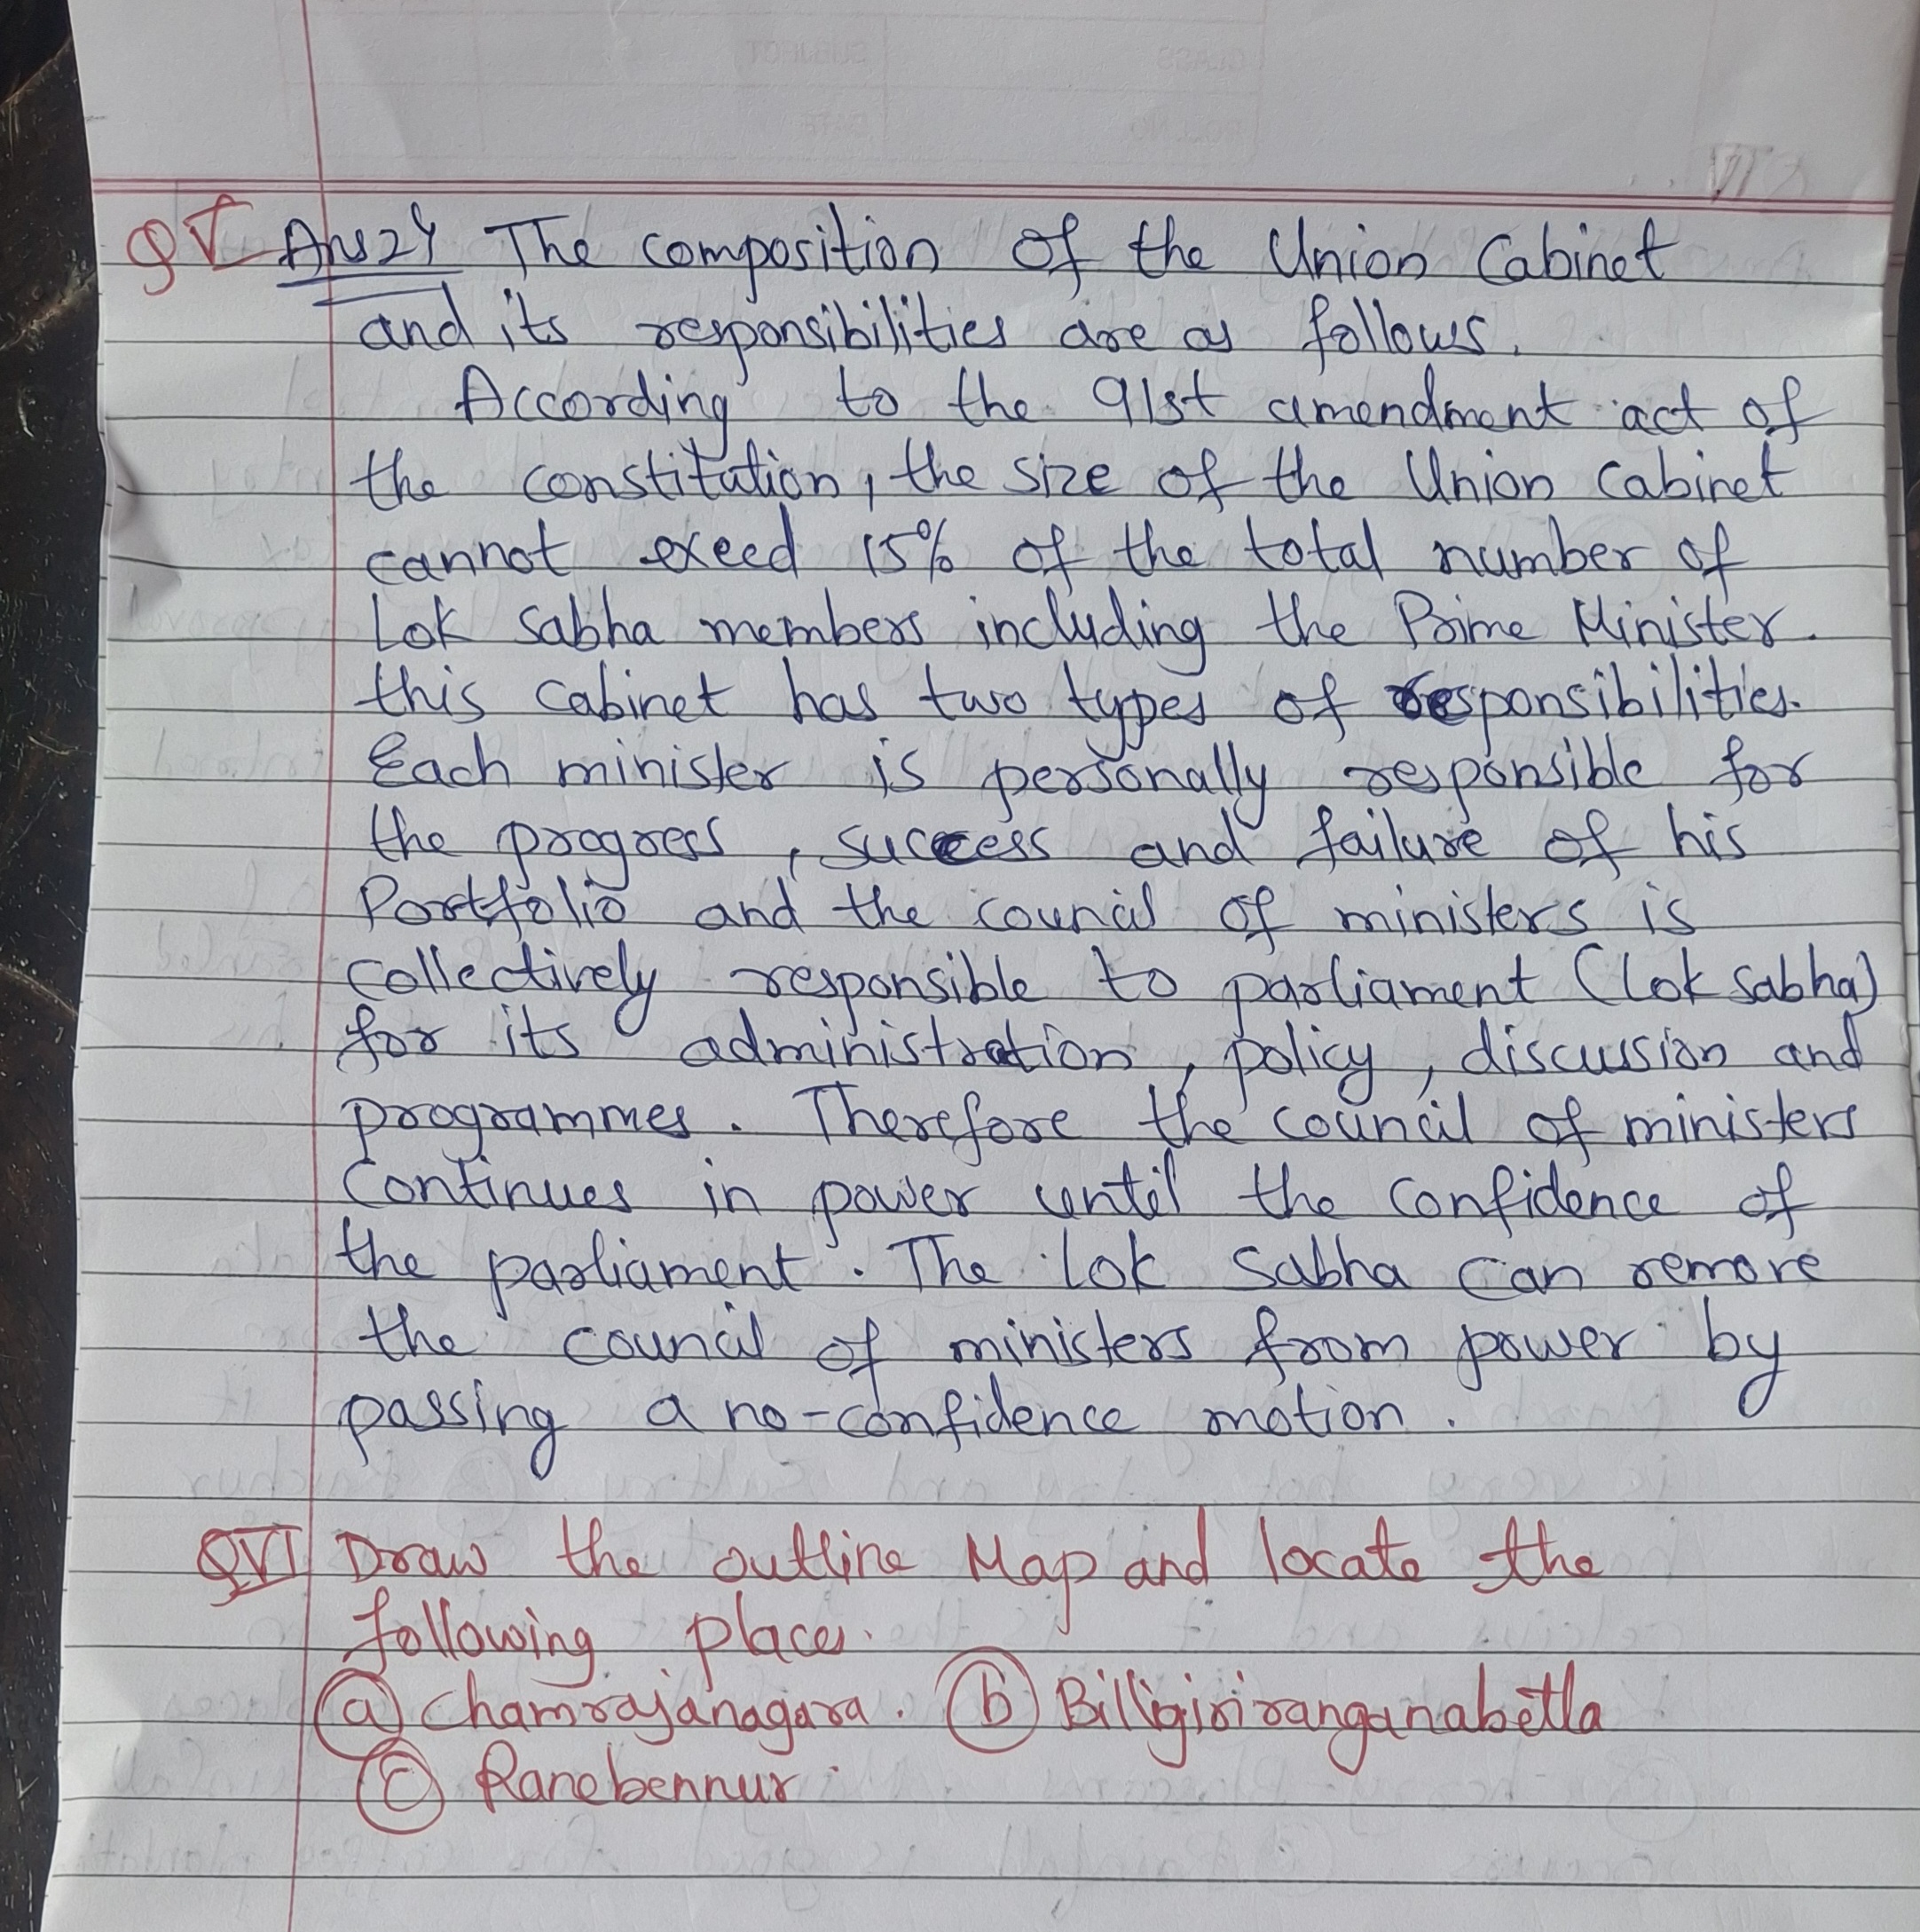 QV Ans24 The composition of the Union Cabinet
and its responsibilities are as follows.
According to the 91st amendment act of
the constitution, the size of the Union Cabinet
cannot exeed 15% of the total number of
Lok Sabha members including the Prime Minister.
this cabinet has two types of responsibilities.
Each minister is personally responsible for
the progress, success and failure of his
Portfolio and the council of ministers is
collectively responsible to parliament (Lok sabha)
for its administration, policy, discussion and
programmes. Therefore the council of ministers
Continues in power until the confidence of
the parliament. The Lok Sabha can remove
the council of ministers from power by
passing a no-confidence motion.
QVI Draw the outline Map and locate the
following places.
(a) Chamrajanagara. (b) Billigiriranganabetta
(c) Ranebennur.